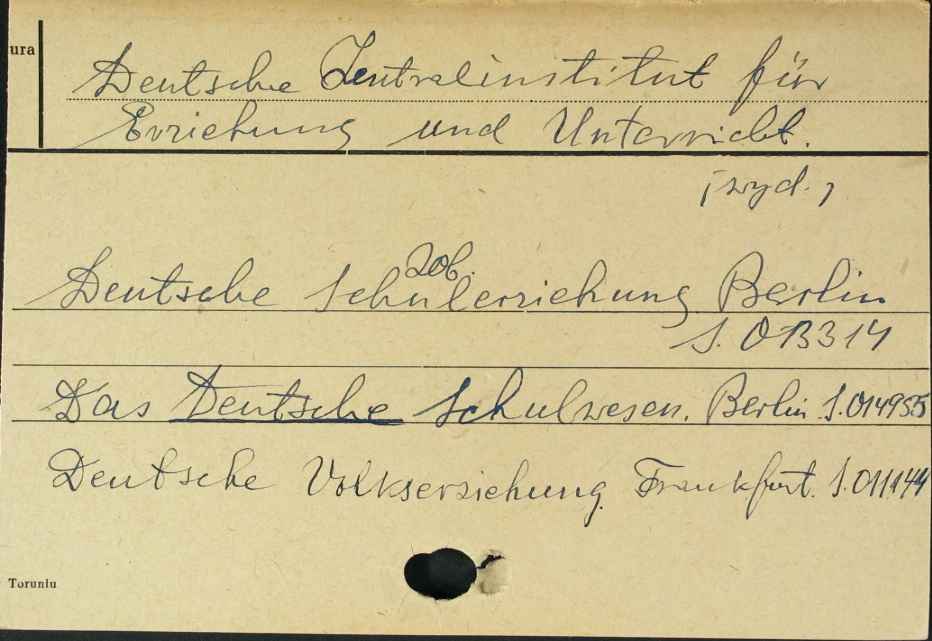 ura
Deutsche Zentralinstitut für
Erziehung und Unterricht.
[wyd.]
zob.
Deutsche Schulerziehung Berlin
S. 013314
Das Deutsche Schulwesen. Berlin S.014955
Deutsche Volkserziehung. Frankfurt. S.011144
Toruniu